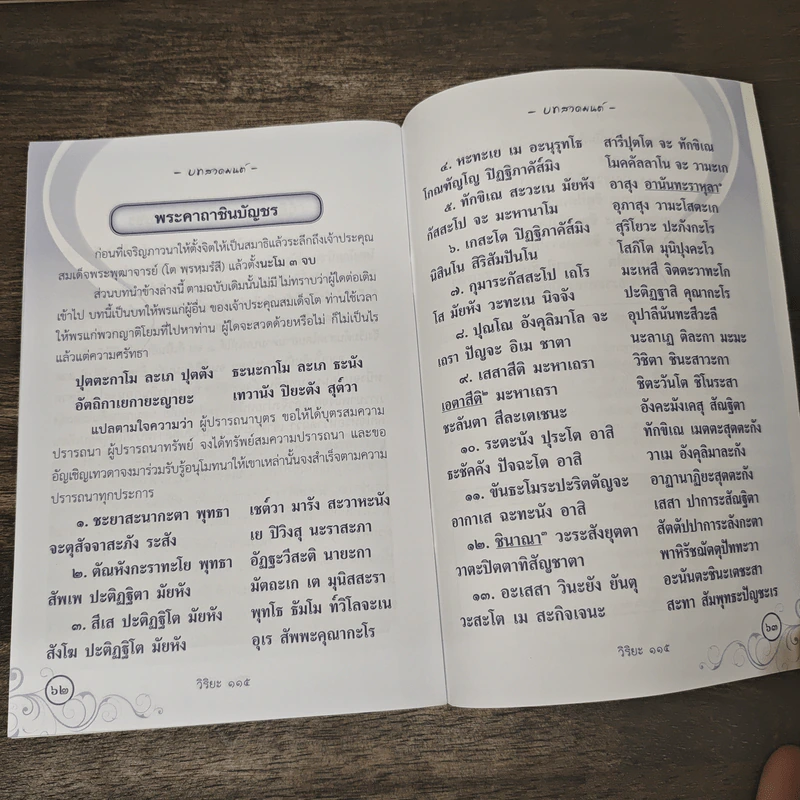 - บทสวดมนต์ -
พระคาถาชินบัญชร
ก่อนที่เจริญภาวนาให้ตั้งจิตให้เป็นสมาธิแล้วระลึกถึงเจ้าประคุณ
สมเด็จพระพุฒาจารย์ (โต พรหมรํสี) แล้วตั้งนะโม ๓ จบ
ส่วนบทนำข้างล่างนี้ ตามฉบับเดิมนั้นไม่มี ไม่ทราบว่าผู้ใดต่อเติม
เข้าไป บทนี้เป็นบทให้พรแก่ผู้อื่น ของเจ้าประคุณสมเด็จโต ท่านใช้เวลา
ให้พรแก่พวกญาติโยมที่ไปหาท่าน ผู้ใดจะสวดด้วยหรือไม่ ก็ไม่เป็นไร
แล้วแต่ความศรัทธา
ปุตตะกาโม ละเภ ปุตตัง ธะนะกาโม ละเภ ธะนัง
อัตถิกาเยกายะญายะ เทวานัง ปิยะตัง สุต์วา
แปลตามใจความว่า ผู้ปรารถนาบุตร ขอให้ได้บุตรสมความ
ปรารถนา ผู้ปรารถนาทรัพย์ จงได้ทรัพย์สมความปรารถนา และขอ
อัญเชิญเทวดาจงมาร่วมรับรู้อนุโมทนาให้เขาเหล่านั้นจงสำเร็จตามความ
ปรารถนาทุกประการ
๑. ชะยาสะนากะตา พุทธา เชต์วา มารัง สะวาหะนัง
จะตุสัจจาสะภัง ระสัง เย ปิวิงสุ นะราสะภา
๒. ตัณหังกะราทะโย พุทธา อัฏฐะวีสะติ นายะกา
สัพเพ ปะติฏฐิตา มัยหัง มัตถะเก เต มุนิสสะรา
๓. สีเส ปะติฏฐิโต มัยหัง พุทโธ ธัมโม ท์วิโลจะเน
สังโฆ ปะติฏฐิโต มัยหัง อุเร สัพพะคุณากะโร
๖๒
วิริยะ ๑๑๕
- บทสวดมนต์ -
๔. หะทะเย เม อะนุรุทโธ สารีปุตโต จะ ทักขิเณ
โกณฑัญโญ ปิฏฐิภาคัส์มิง โมคคัลลาโน จะ วามะเก
๕. ทักขิเณ สะวะเน มัยหัง อาสุง อานันทะราหุลา
กัสสะโป จะ มะหานาโม อุภาสุง วามะโสตะเก
๖. เกสะโต ปิฏฐิภาคัส์มิง สุริโยวะ ปะภังกะโร
นิสินโน สิริสัมปันโน โสภิโต มุนิปุงคะโว
๗. กุมาระกัสสะโป เถโร มะเหสี จิตตะวาทะโก
โส มัยหัง วะทะเน นิจจัง ปะติฏฐาสิ คุณากะโร
๘. ปุณโณ อังคุลิมาโล จะ อุปาลีนันทะสีวะลี
เถรา ปัญจะ อิเม ชาตา นะลาเฏ ติละกา มะมะ
๙. เสสาสีติ มะหาเถรา วิชิตา ชินะสาวะกา
เอตาสีติ มะหาเถรา ชิตะวันโต ชิโนระสา
ชะลันตา สีละเตเชนะ อังคะมังเคสุ สัณฐิตา
๑๐. ระตะนัง ปุระโต อาสิ ทักขิเณ เมตตะสุตตะกัง
ธะชัคคัง ปัจฉะโต อาสิ วาเม อังคุลิมาละกัง
๑๑. ขันธะโมระปะริตตัญจะ อาฏานาฏิยะสุตตะกัง
อากาเส ฉะทะนัง อาสิ เสสา ปาการะสัณฐิตา
๑๒. ชินาณา วะระสังยุตตา สัตตัปปาการะลังกะตา
วาตะปิตตาทิสัญชาตา พาหิรัชฌัตตุปัททะวา
๑๓. อะเสสา วินะยัง ยันตุ อะนันตะชินะเตชะสา
วะสะโต เม สะกิจเจนะ สะทา สัมพุทธะปัญชะเร
วิริยะ ๑๑๕
๖๓